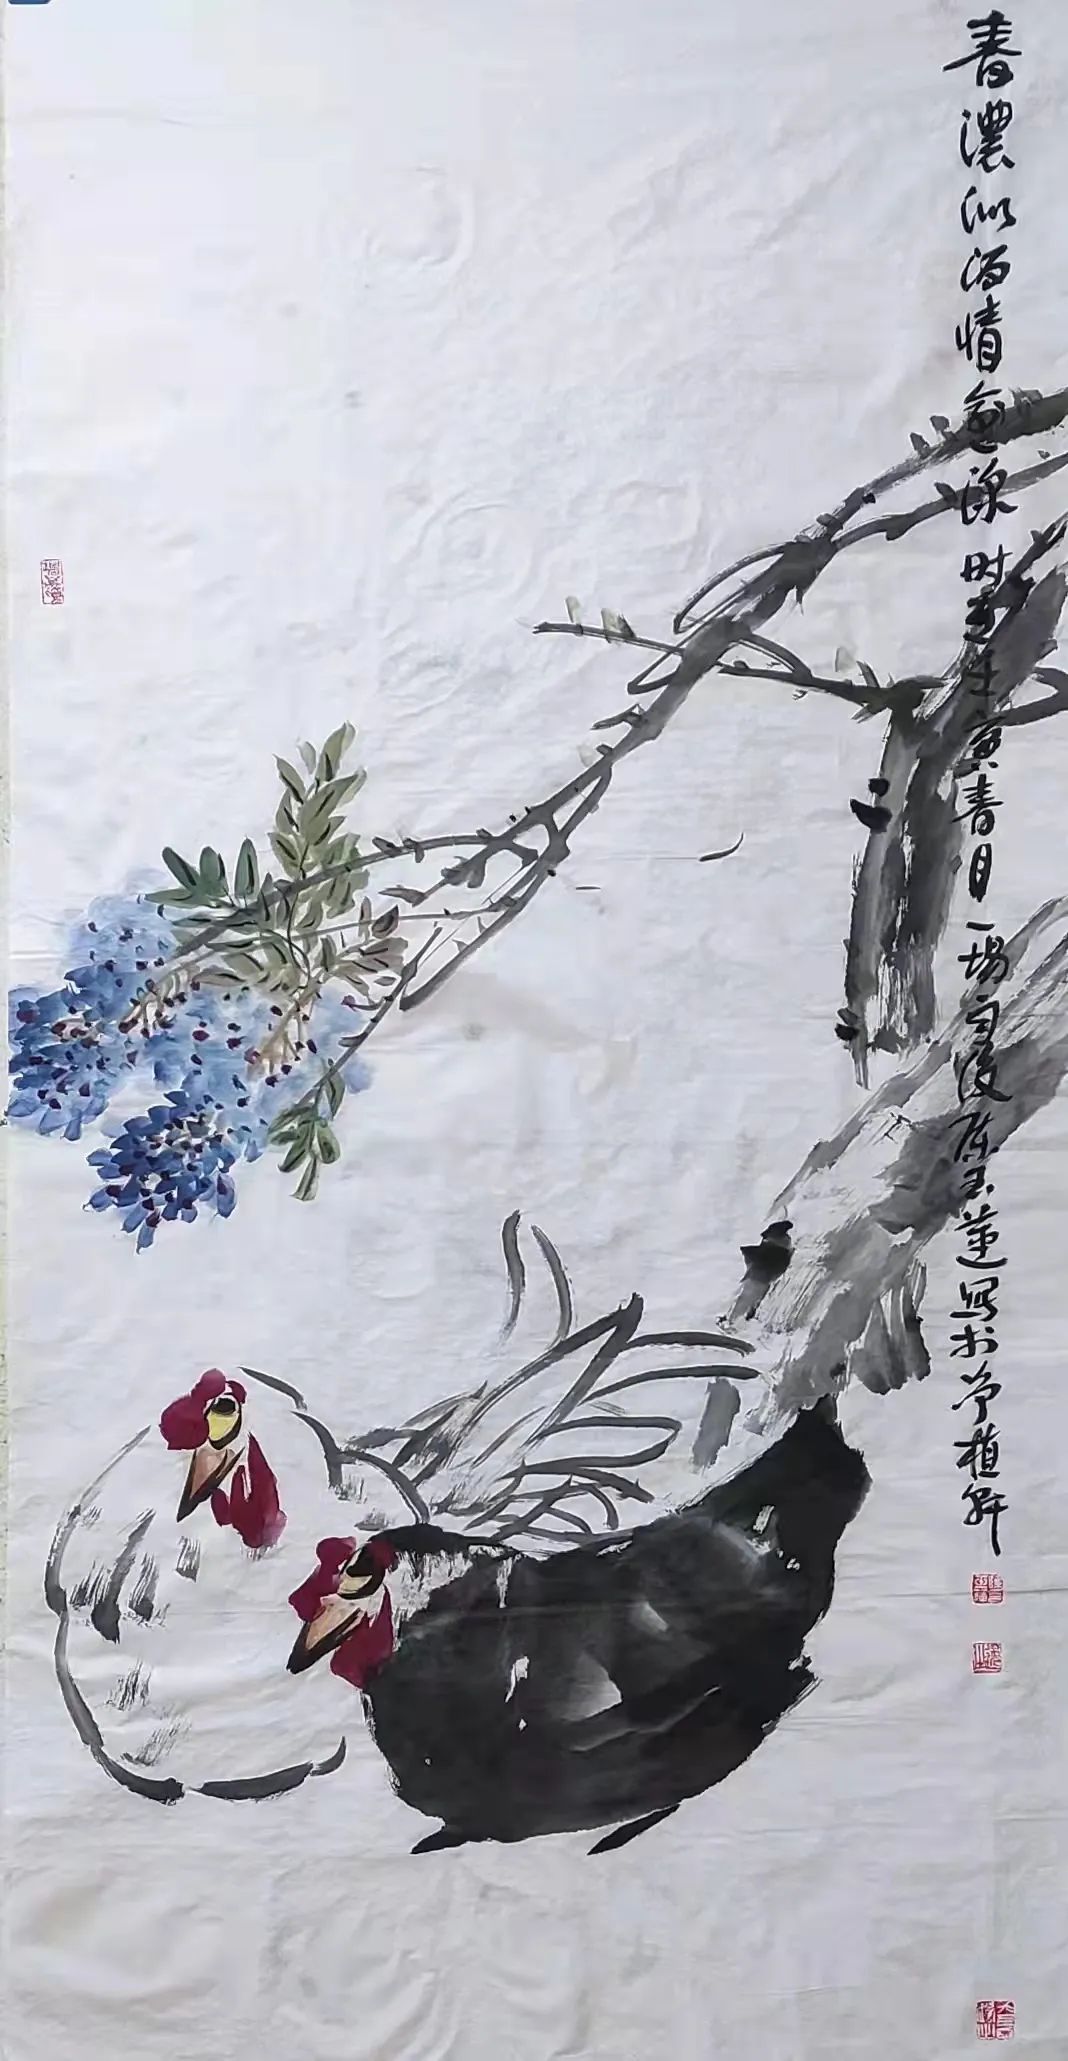 春濃似酒情愈深 时在壬寅春月一場白後陈玉蓮寫於